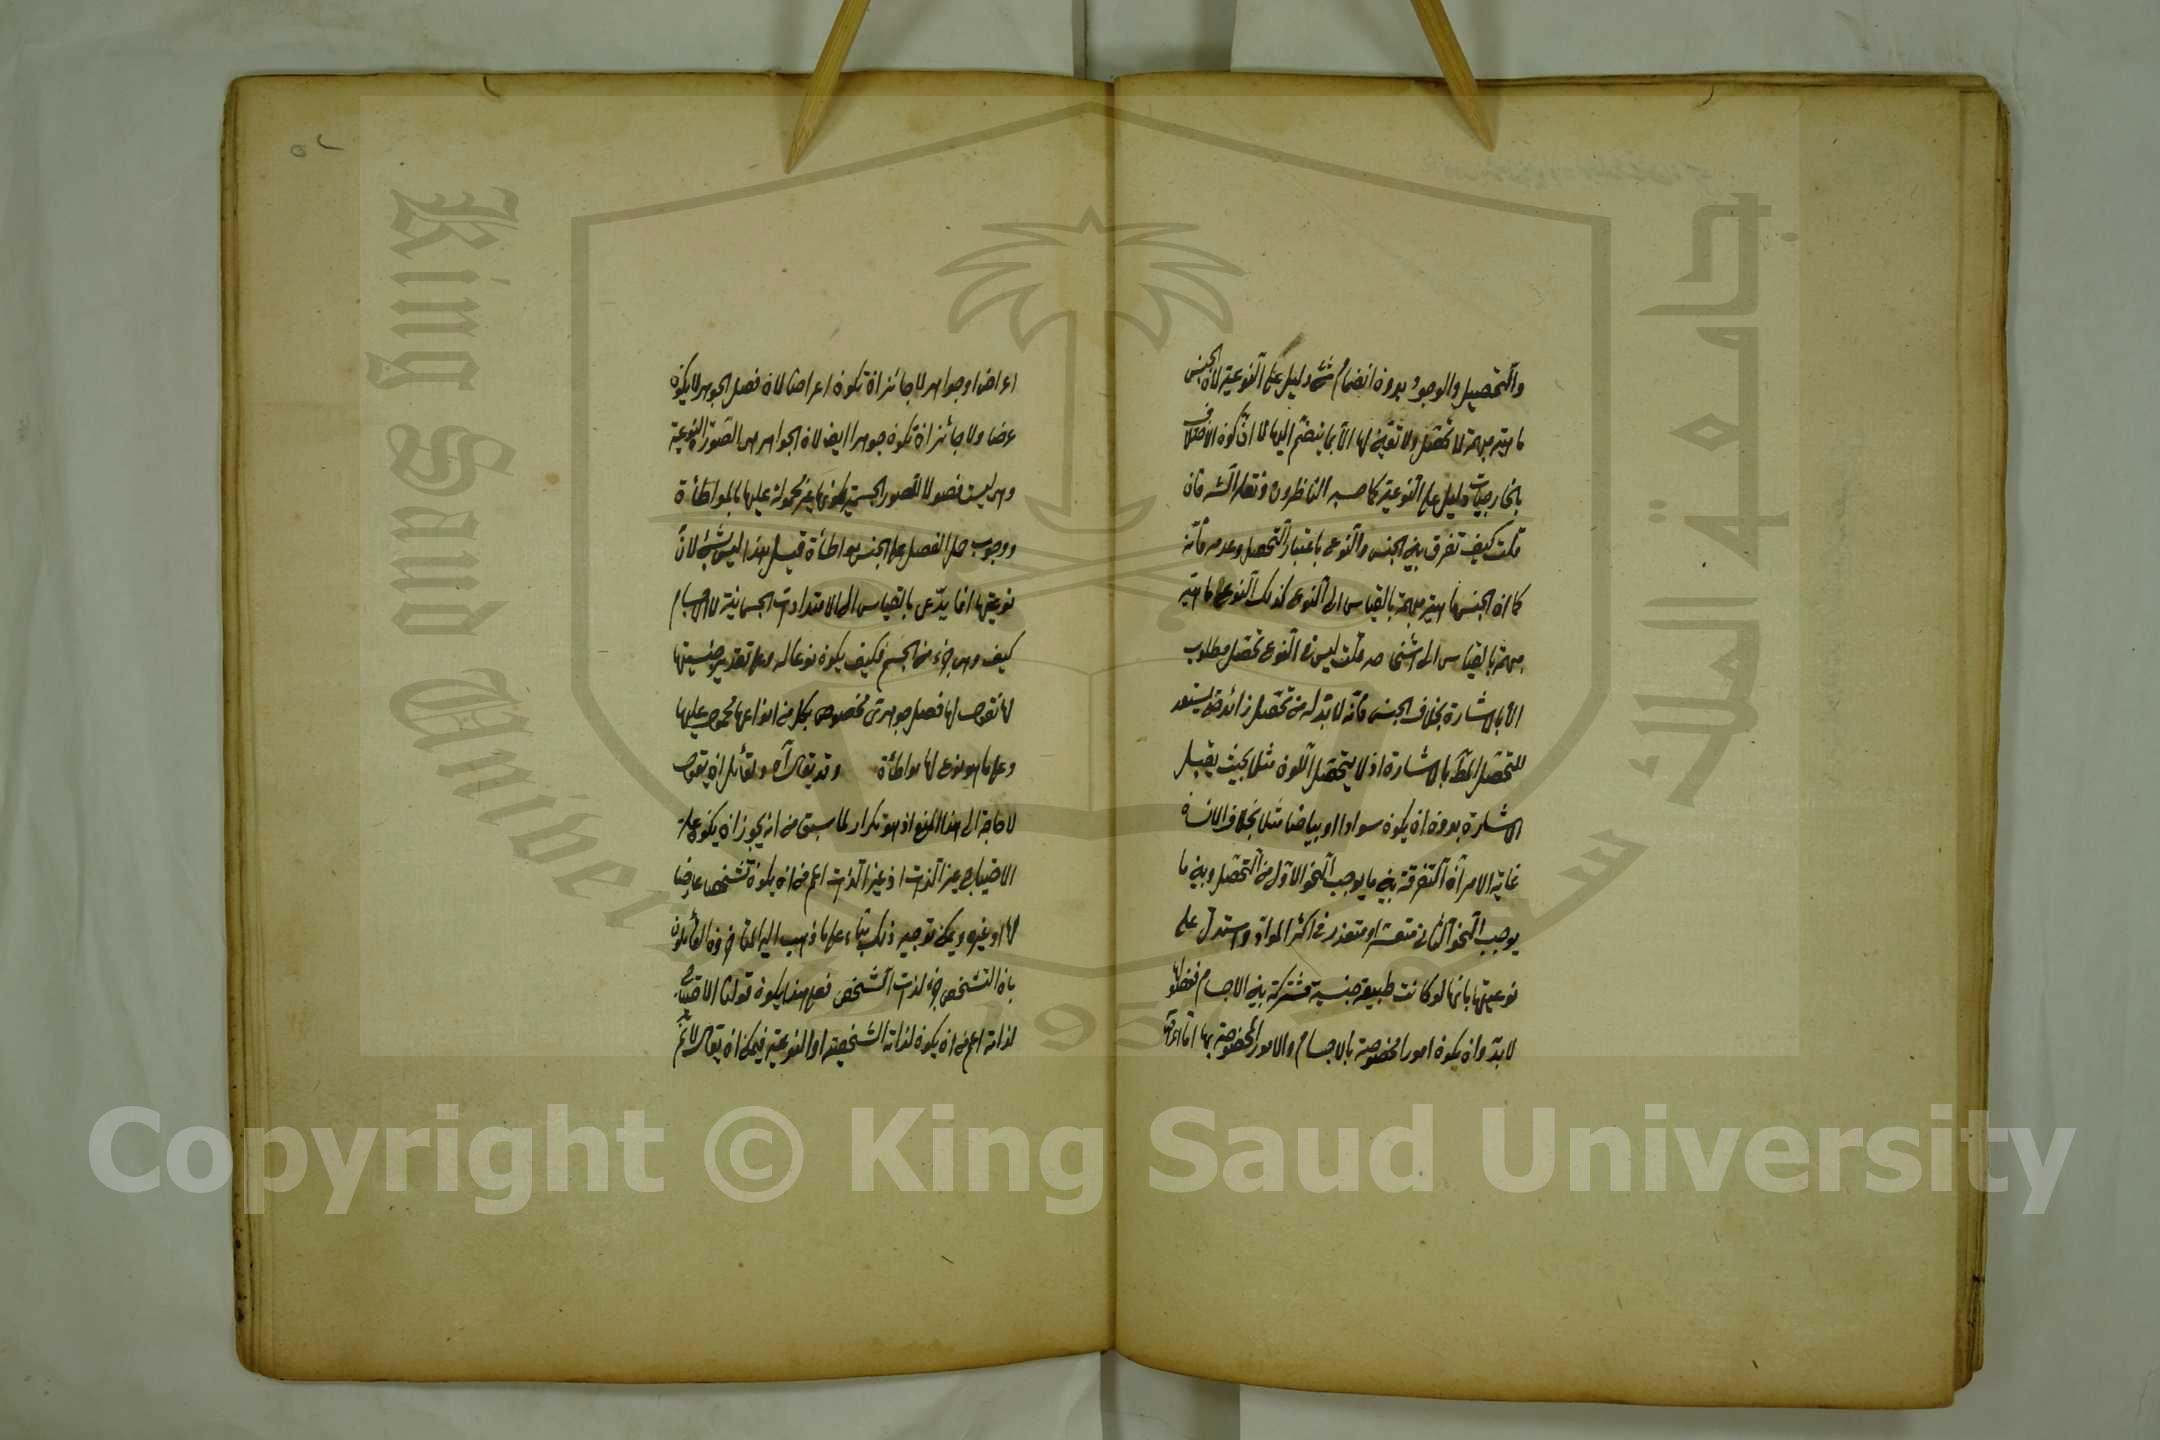 والتحصيل والوجود بدون انضمام شئ دليل على النوعية لان الجنس
ماهية مبهمة لا تحصل ولا تعين لها الا بما ينضم اليها لما ان كون الاختلاف
بالخارجيات دليل على النوعية كما حسبه الناظرون فان
قلت كيف تفرق بين الجنس والنوع باعتبار التحصل وعدمه فانه
كما ان الجنس ماهية مبهمة بالقياس الى النوع كذلك النوع ماهية
مبهمة بالقياس الى اشخاصه قلت ليس في النوع تحصل مطلوب
الا بالاشارة بخلاف الجنس فانه لا بد له من تحصل زائد حتى يستعد
للتحصل بالاشارة اذ لا يتحصل اللون مثلا بحيث يقبل
الاشارة بدون ان يكون سوادا او بياضا مثلا بخلاف الانسان
غاية الامر ان التفرقة بين ما يوجب النحو الاول من التحصل وبين ما
يوجب النحو الثاني متعسر او متعذر في اكثر المواد واستدل على
نوعيتها بانها لو كانت طبيعة جنسية مشتركة بين الاجسام
لا بد وان يكون امورا مخصوصة بالاجسام والامور المخصوصة بها اما
اعراض او جواهر لا جائز ان تكون اعراضا لان فصل الجوهر لا يكون
عرضا ولا جائز ان تكون جوهرا ايضا لان الجواهر هي الصور النوعية
وهي ليست فصولا للصور الجسمية لكونها غير محمولة عليها بالمواطأة
ووجوب حمل الفصل على الجنس مواطأة قيل هذا ليس بشئ لان
نوعيتها انما يدعى بالقياس الى الامتدادات الجسمانية لا الاجسام
كيف وهي جزء من الجسم فكيف يكون نوعا له وعلى تقدير جنسيتها
لها نقول لها فصل جوهري مخصوص بكل من انواعها محمول عليها
وعلى ما هو نوع لها مواطأة وقد يقال آه ولقائل ان يقول
لا حاجة الى هذا المنع اذ هو تكرار لما سبق من انه يجوز ان يكون علة
الاحتياج غير الذات اذ غير الذات اعم من ان يكون تشخص عارضا
لها او غيره ويمكن توجيه ذلك بناء على ما ذهب اليه القائلون
بان التشخص جزء لذات الشخص فعلى هذا يكون قولنا الاحتياج
لذاته اعم من ان يكون لذاته الشخصية او النوعية فيمكن ان يقال لا نم
King Saud University
جامعة الملك سعود
1957
Copyright © King Saud University